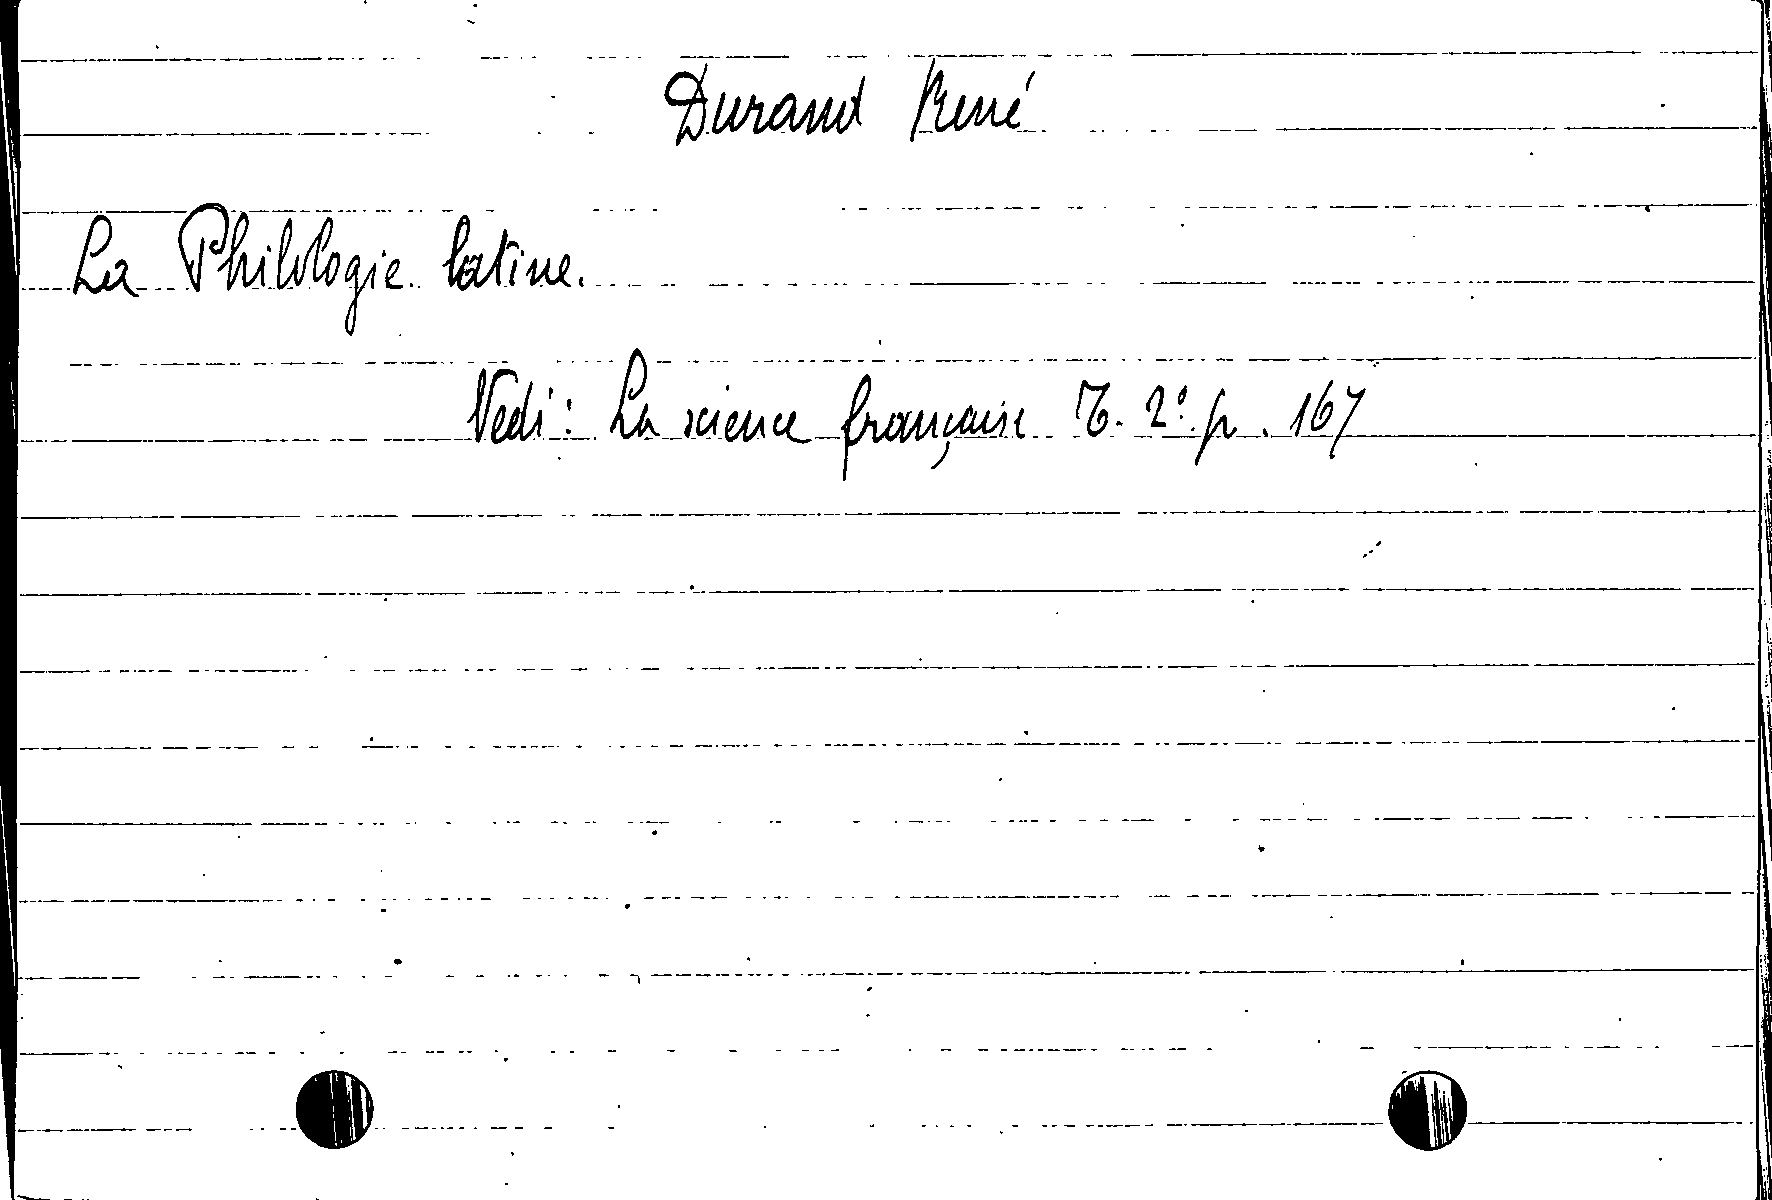 Durand René
La Philologie latine.
Vedi: La science française T. 2° p. 167